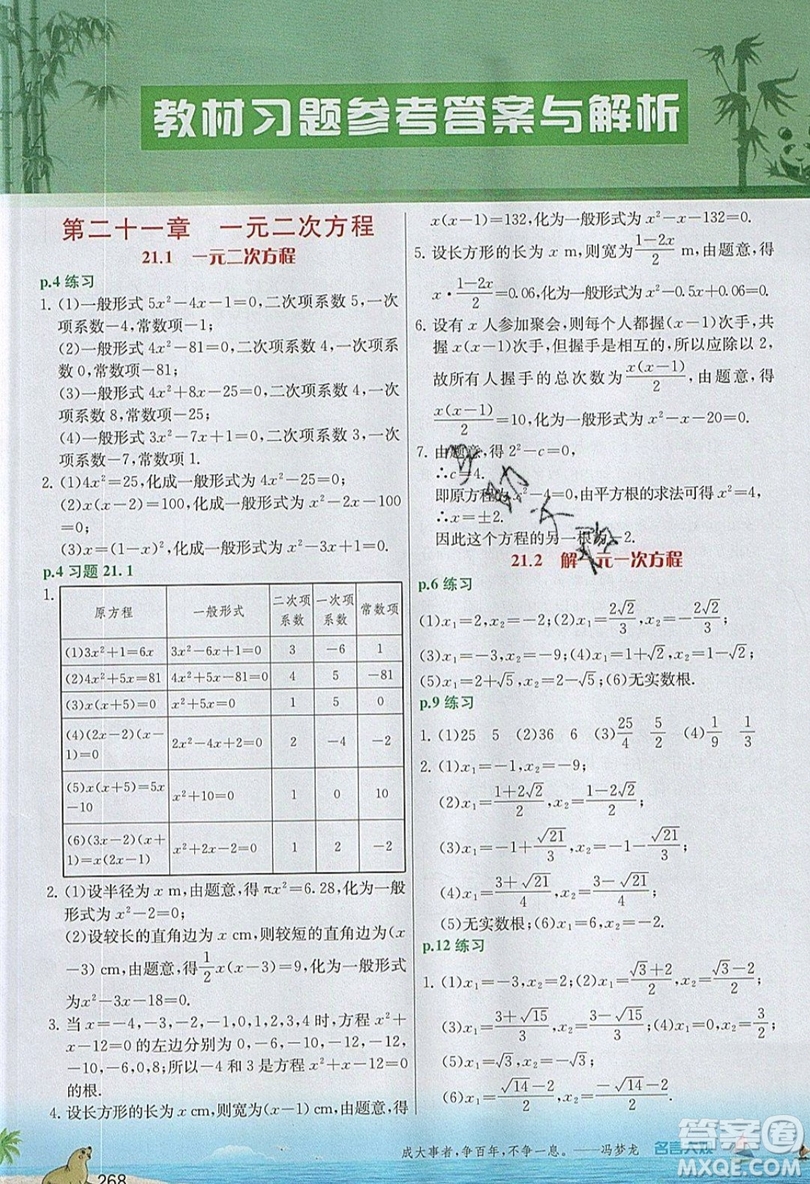 教材习题参考答案与解析
第二十一章 一元二次方程
21.1 一元二次方程
p.4 练习
1. (1)一般形式 5x²-4x-1=0,二次项系数 5,一次
项系数-4,常数项-1;
(2)一般形式 4x²-81=0,二次项系数 4,一次项系
数 0,常数项-81;
(3)一般形式 4x²+8x-25=0,二次项系数 4,一次
项系数 8,常数项-25;
(4)一般形式 3x²-7x+1=0,二次项系数 3,一次项
系数-7,常数项 1.
2. (1)4x²=25,化成一般形式为 4x²-25=0;
(2)x(x-2)=100,化成一般形式为 x²-2x-100
=0;
(3)x=(1-x)²,化成一般形式为 x²-3x+1=0.
p.4 习题 21.1
1.
原方程 一般形式 二次项系数 一次项系数 常数项
(1)3x²+1=6x 3x²-6x+1=0 3 -6 1
(2)4x²+5x=81 4x²+5x-81=0 4 5 -81
(3)x(x+5)=0 x²+5x=0 1 5 0
(4)(2x-2)(x-1)=0 2x²-4x+2=0 2 -4 -2
(5)x(x+5)=5x-10 x²+10=0 1 0 10
(6)(3x-2)(x+1)=x(2x-1) x²+2x-2=0 1 2 -2
2. (1)设半径为 x m,由题意,得 πx²=6.28,化为一般
形式为 πx²-6.28=0;
(2)设较长的直角边为 x cm,则较短的直角边为(x
-3)cm,由题意,得 1/2 x(x-3)=9,化为一般形式为
x²-3x-18=0.
3. 当 x=-4,-3,-2,-1,0,1,2,3,4 时,方程 x²+
x-12=0 的左边分别为 0,-6,-10,-12,-12,
-10,-6,0,8;所以-4 和 3 是方程 x²+x-12=0
的根.
4. 设长方形的长为 x cm,则宽为(x-1)cm,由题意,得
x(x-1)=132,化为一般形式为 x²-x-132=0.
5. 设长方形的长为 x m,则宽为 (1-2x)/2 m,由题意,得
x·(1-2x)/2=0.06,化为一般形式为 x²-0.5x+0.06=0.
6. 设有 x 人参加聚会,则每个人都握(x-1)次手,共
握 x(x-1)次手,但握手是相互的,所以应除以 2,
故所有人握手的总次数为 x(x-1)/2,由题意,得
x(x-1)/2=10,化为一般形式为 x²-x-20=0.
7. 由题意,得 2²-c=0,
∴c=4.
即原方程为 x²-4=0,由平方根的求法可得到,
∴x=±2.
因此这个方程的另一根为-2.
21.2 解一元一次方程
p.6 练习
(1)x₁=2,x₂=-2; (2)x₁=2√2/3,x₂=-2√2/3;
(3)x₁=-9,x₂=-1; (4)x₁=-1/3,x₂=5/3;
(5)x₁=2+√5,x₂=2-√5; (6)无实数根.
p.9 练习
1. (1)25 5 (2)36 6 (3)25/4 5/2 (4)1/9 1/3
2. (1)x₁=-1,x₂=-9;
(2)x₁=(1+2√2)/2,x₂=(1-2√2)/2;
(3)x₁=-1+√21/3,x₂=-1-√21/3;
(4)x₁=(3+√21)/4,x₂=(3-√21)/4;
(5)无实数根; (6)x₁=6,x₂=-2.
p.12 练习
1. (1)x₁=-3,x₂=2; (2)x₁=(√3+2)/2,x₂=(√3-2)/2;
(3)x₁=(3+√15)/3,x₂=(3-√15)/3; (4)x₁=0,x₂=3/2;
(5)x₁=√3,x₂=-√3;
(6)x₁=(√14-2)/2,x₂=-(√14-2)/2.
成大事者,争百年,不争一息。——冯梦龙
268
答案圈
MXQE.COM